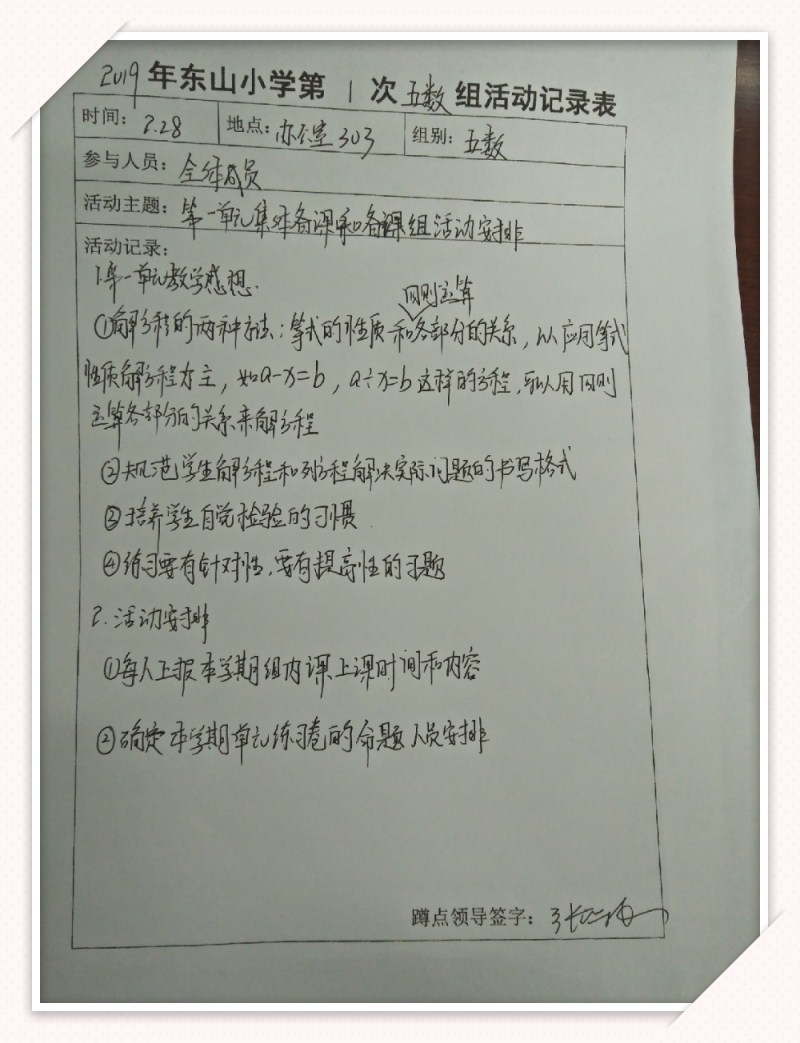 2019年东山小学第1次五数组活动记录表
时间：2.28 地点：办公室303 组别：五数
参与人员：全体成员
活动主题：第一单元集体备课和备课组活动安排
活动记录：
1.第一单元教学感想.
四则运算
①解方程的两种方法：等式的性质和各部分的关系，以应用等式
性质解方程为主，如a-x=b，a÷x=b这样的方程，可以用四则
运算各部分的关系来解方程
②规范学生解方程和列方程解决实际问题的书写格式
③培养学生自觉检验的习惯.
④练习要有针对性，要有提高性的习题
2.活动安排
①每人上报本学期组内课上课时间和内容
②确定本学期单元练习卷的命题人员安排
蹲点领导签字：张